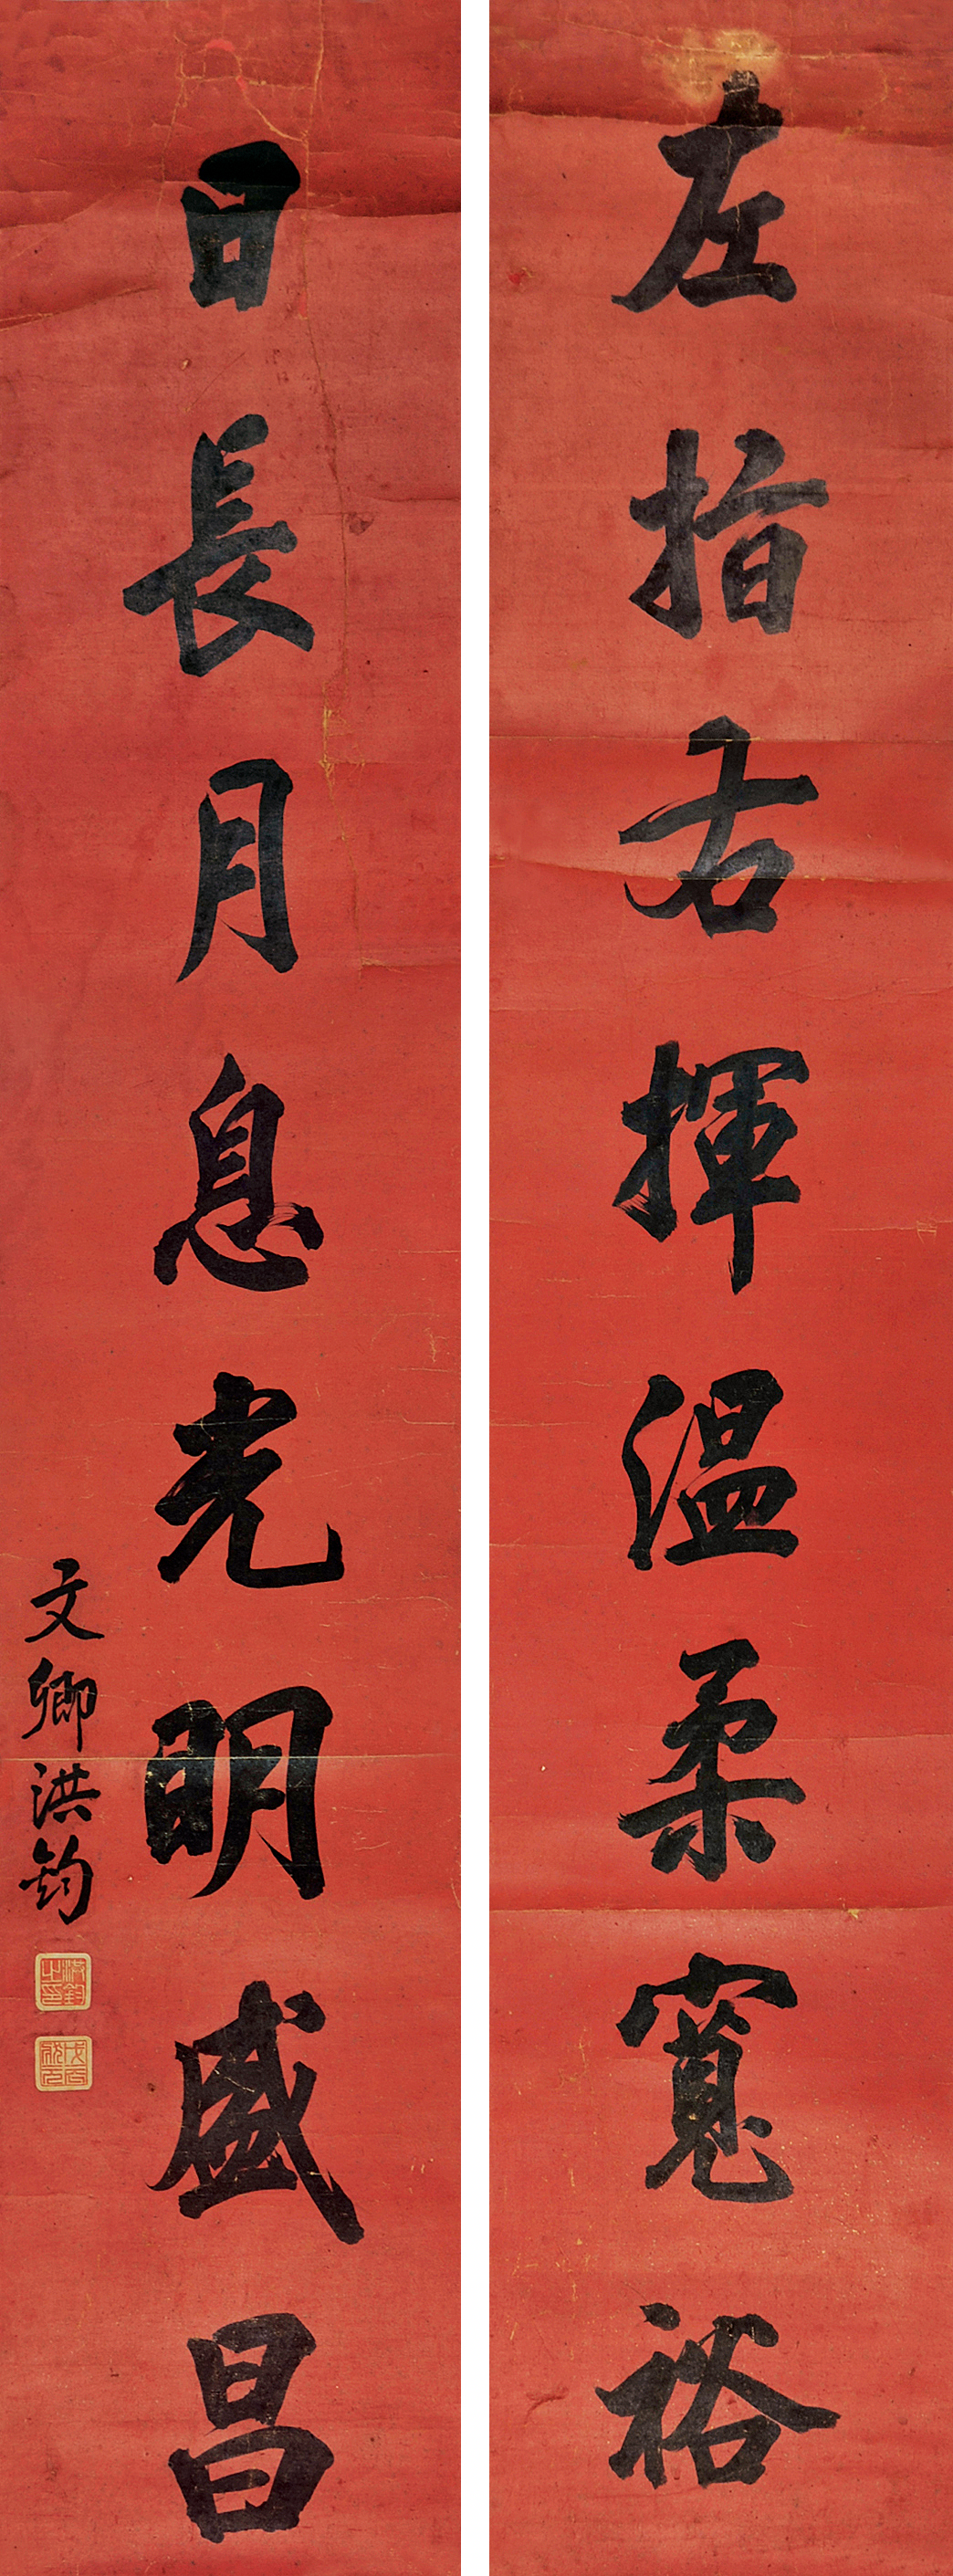 左指右揮溫柔寬裕
日長月息光明盛昌
文卿洪鈞
洪鈞之印